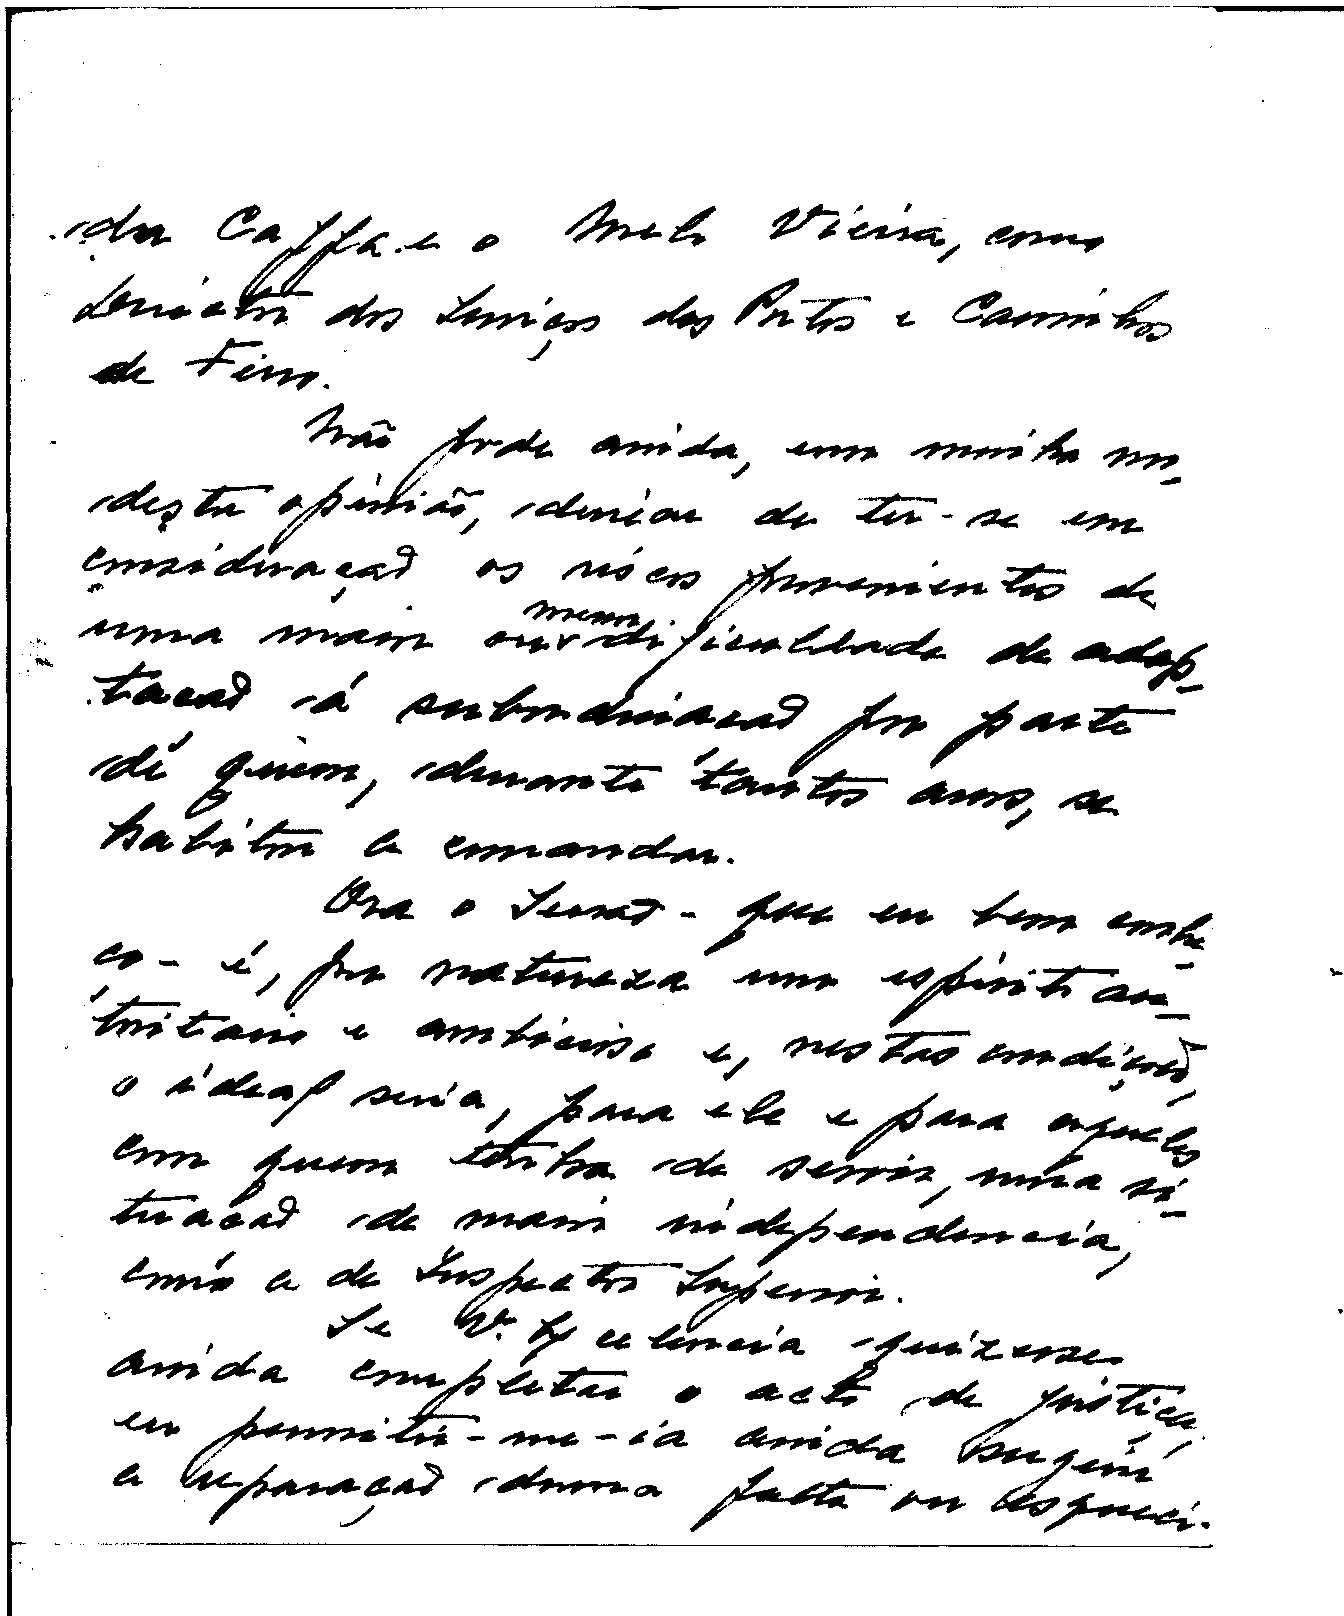 da Caffa e o Melo Vieira, como
Director dos Serviços dos Portos e Caminhos
de Ferro.
Não pode ainda, em minha mo-
desta opinião, deixar de ter-se em
consideração os riscos provenientes de
uma maior ou menor dificuldade de adap-
tação á subordinação por parte
de quem, durante tantos anos, se
habitou a comandar.
Ora o Serrão - que eu bem conhe-
ço - é, por natureza um espirito au-
toritario e ambicioso e, nestas condições,
o ideal seria, para ele e para aqueles
com quem tenha de servir, uma si-
tuação de maior independencia,
como a de Inspector Superior.
Se V. Excelencia quizesse
ainda completar o acto de justiça,
eu permitir-me-ia ainda sugerir
a reparação duma falta ou esqueci-